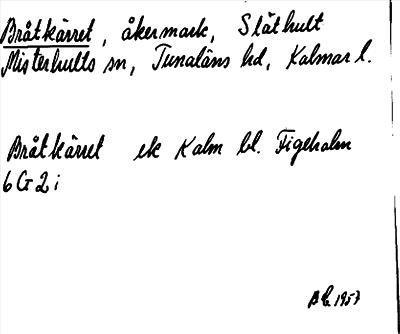 Bråtkärret, åkermark, Släthult
Misterhults sn, Tunaläns hd, Kalmar l.
Bråtkärret ek Kalm bl. Figeholm
6 G 2 i
1957